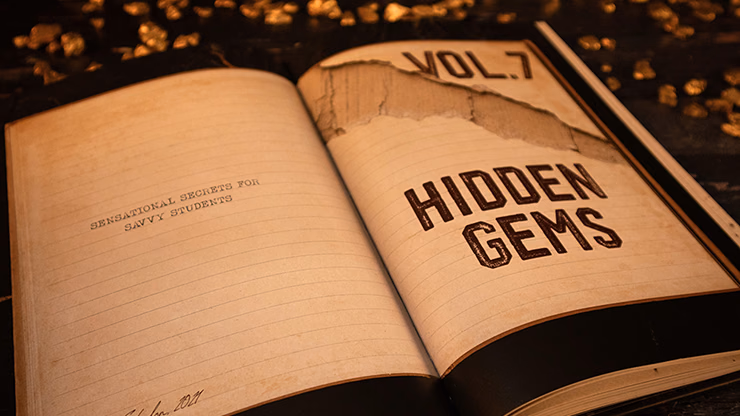 SENSATIONAL SECRETS FOR
SAVVY STUDENTS
2021
VOL.7
HIDDEN
GEMS